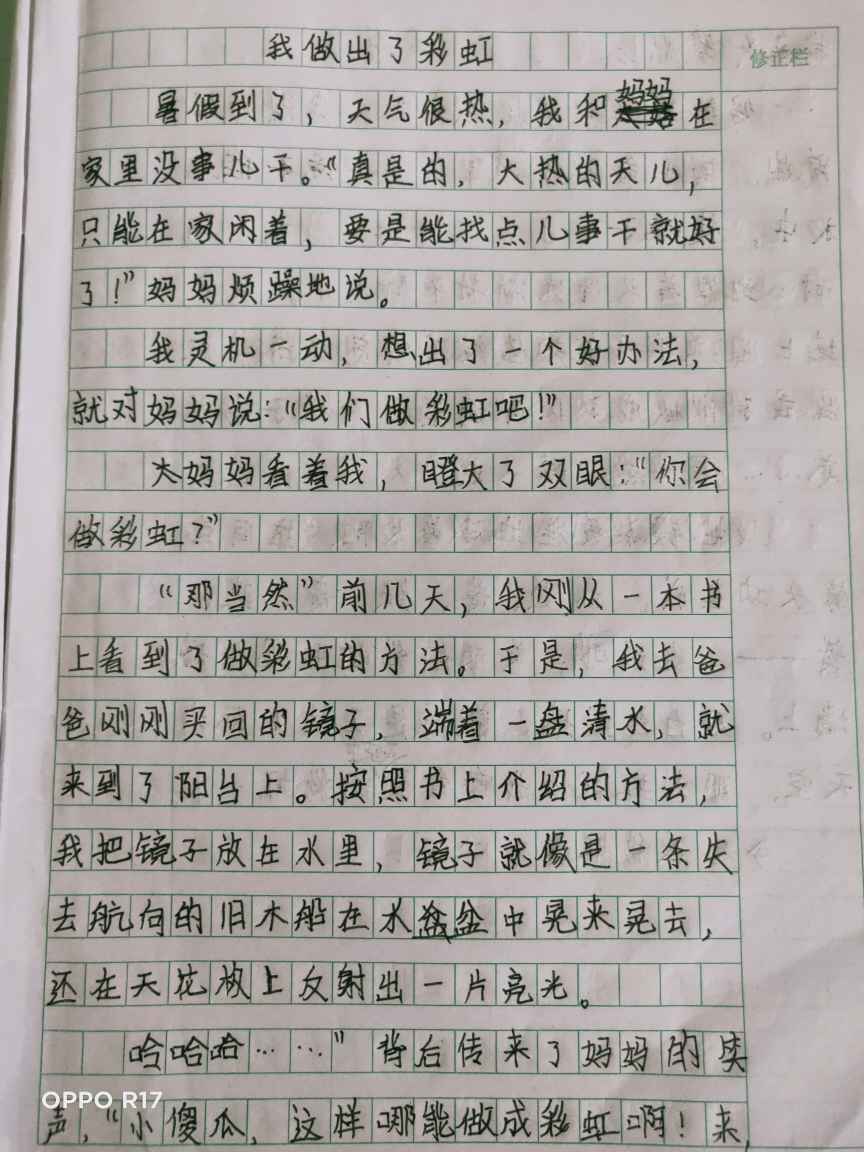 我做出了彩虹
修正栏
暑假到了，天气很热，我和妈妈在
家里没事儿干。“真是的，大热的天儿，
只能在家闲着，要是能找点儿事干就好
了！”妈妈烦躁地说。
我灵机一动，想出了一个好办法，
就对妈妈说：“我们做彩虹吧！”
大妈妈看着我，瞪大了双眼：“你会
做彩虹？”
“那当然”前几天，我刚从一本书
上看到了做彩虹的方法。于是，我去爸
爸刚刚买回的镜子，端着一盘清水，就
来到了阳台上。按照书上介绍的方法，
我把镜子放在水里，镜子就像是一条失
去航向的旧木船在水盆中晃来晃去，
还在天花板上反射出一片亮光。
哈哈哈……”背后传来了妈妈的笑
声，“小傻瓜，这样哪能做成彩虹啊！来，
OPPO R17